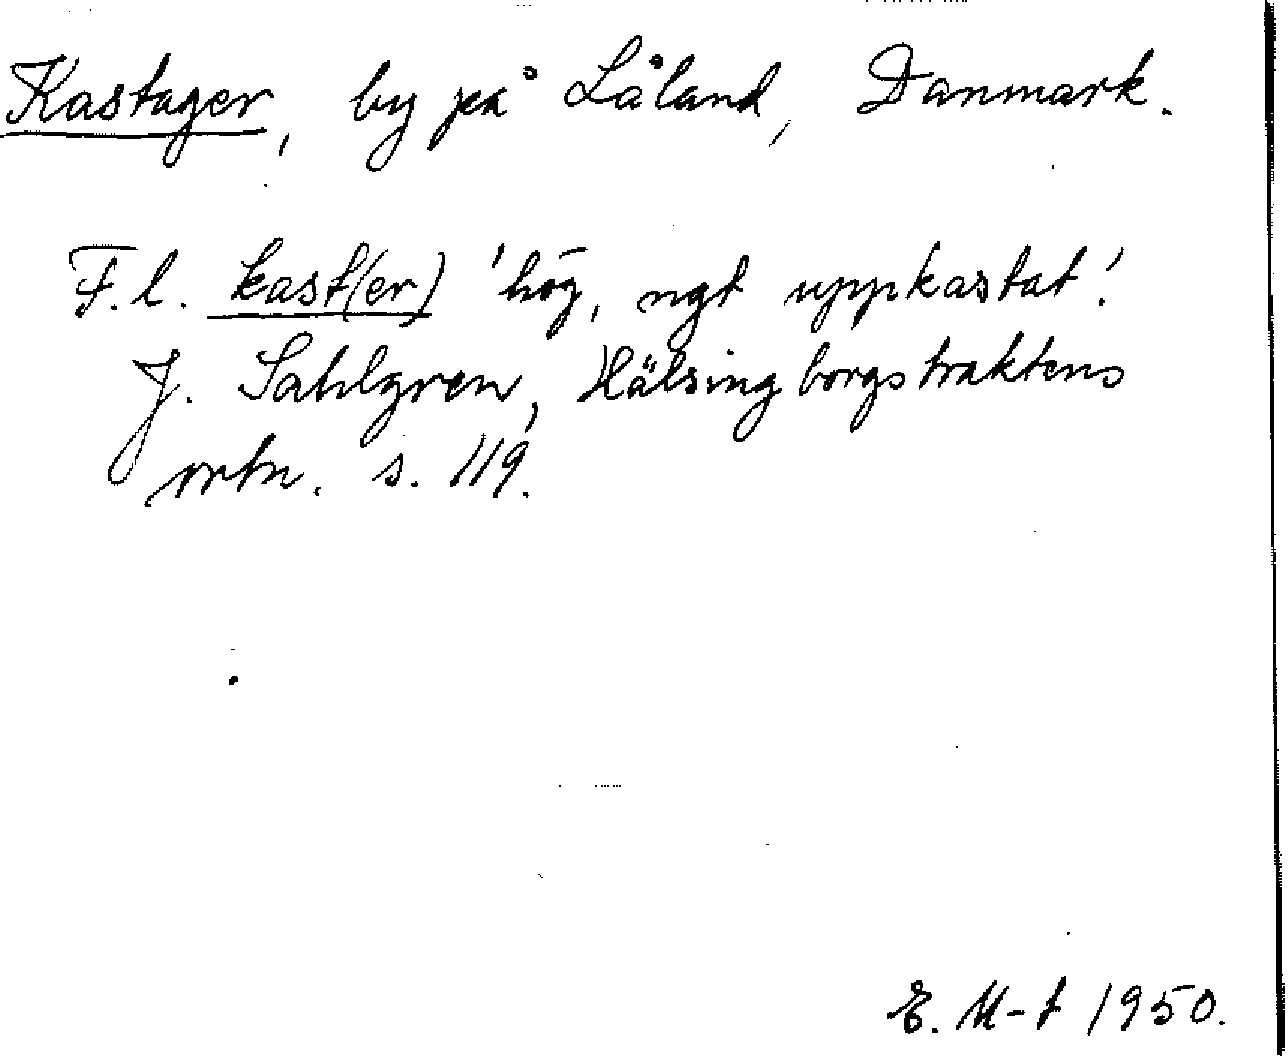 Kastager, by på Låland, Danmark.
F.l. kast(er) 'hög, ngt uppkastat'.
J. Sahlgren, Hälsingborgstraktens
ortn. s. 119.
E. M-t 1950.